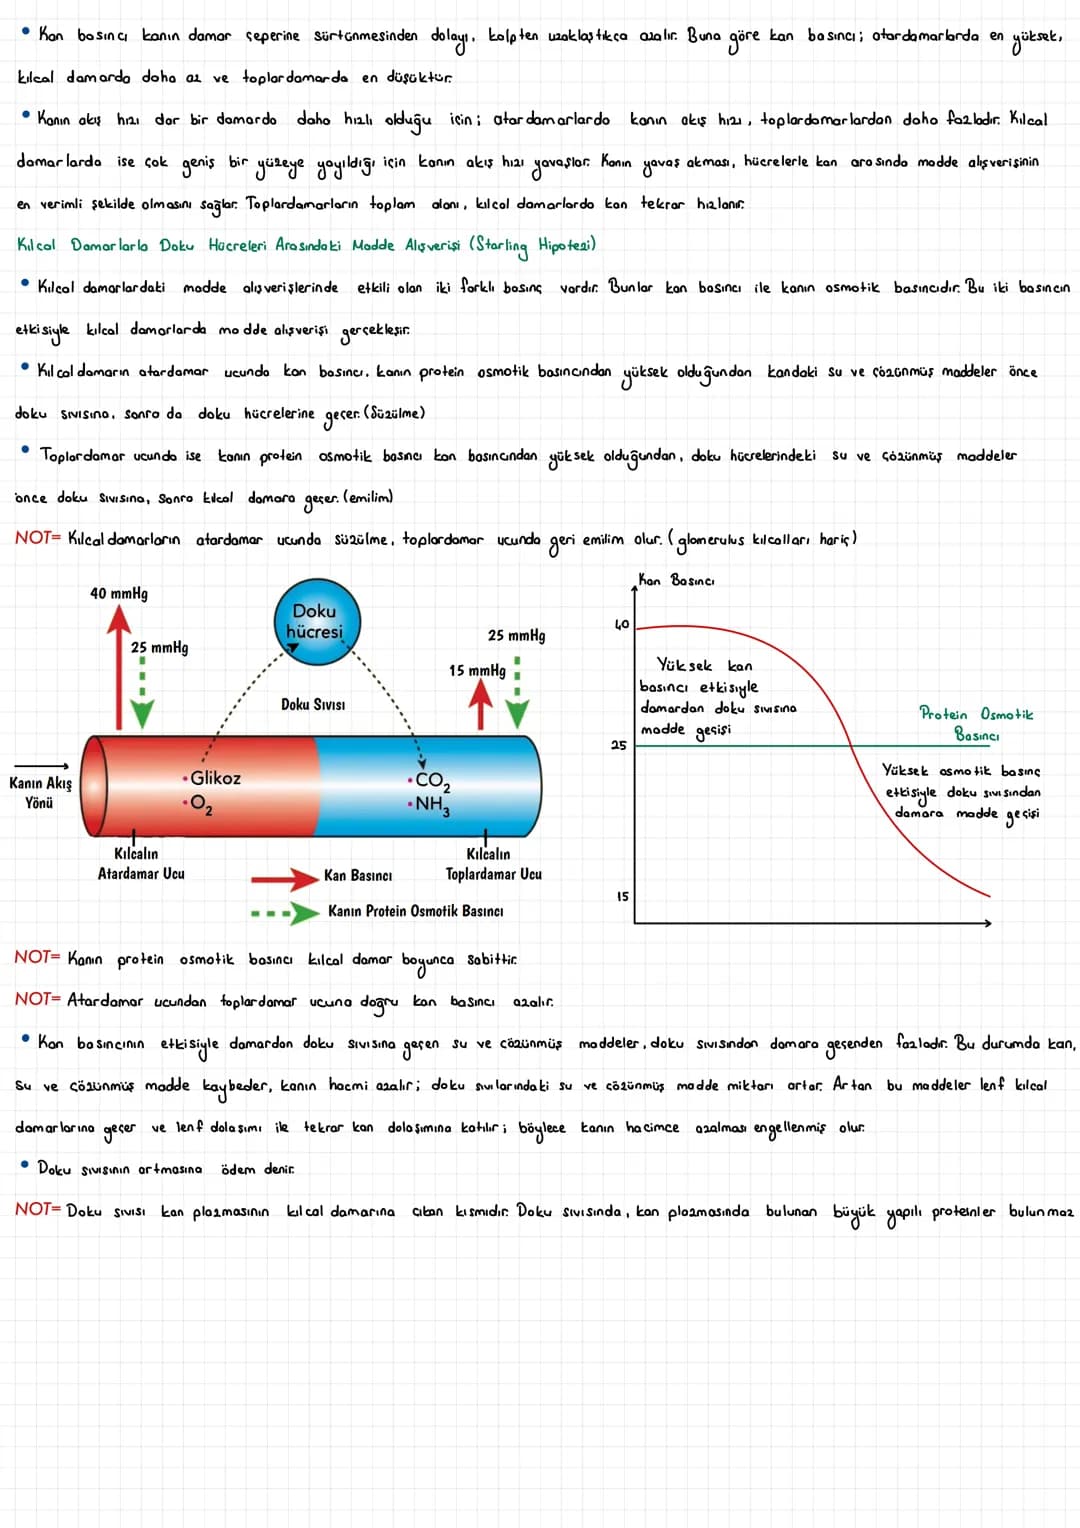 • Kan basıncı kanın damar çeperine sürtünmesinden dolayı, kalpten uzaklaştıkça azalır. Buna göre kan basıncı; atardamarlarda en yüksek,
kılcal damarda daha az ve toplardamarda en düşüktür.
• Kanın akış hızı dar bir damarda daha hızlı olduğu için; atardamarlarda kanın akış hızı, toplardamarlardan daha fazladır. Kılcal
damarlarda ise çok geniş bir yüzeye yayıldığı için kanın akış hızı yavaşlar. Kanın yavaş akması, hücrelerle kan arasında madde alışverişinin
en verimli şekilde olmasını sağlar. Toplardamarların toplam alanı, kılcal damarlarda kan tekrar hızlanır.
Kılcal Damarlarla Doku Hücreleri Arasındaki Madde Alışverişi (Starling Hipotezi)
• Kılcal damarlardaki madde alışverişlerinde etkili olan iki farklı basınç vardır. Bunlar kan basıncı ile kanın osmotik basıncıdır. Bu iki basıncın
etkisiyle kılcal damarlarda madde alışverişi gerçekleşir.
• Kılcal damarın atardamar ucunda kan basıncı, kanın protein osmotik basıncından yüksek olduğundan kandaki su ve çözünmüş maddeler önce
doku sıvısına, sonra da doku hücrelerine geçer. (Süzülme)
• Toplardamar ucunda ise kanın protein osmotik basıncı kan basıncından yüksek olduğundan, doku hücrelerindeki su ve çözünmüş maddeler
önce doku sıvısına, sonra kılcal damara geçer. (emilim)
NOT= Kılcal damarların atardamar ucunda süzülme, toplardamar ucunda geri emilim olur. (glomerulus kılcalları hariç)
40 mmHg
25 mmHg
Doku
hücresi
Doku Sıvısı
25 mmHg
15 mmHg
Kanın Akış
Yönü
•Glikoz
•O₂
•CO₂
•NH₃
Kılcalın
Atardamar Ucu
Kılcalın
Toplardamar Ucu
Kan Basıncı
Kanın Protein Osmotik Basıncı
Kan Basıncı
40
Yüksek kan
basıncı etkisiyle
damardan doku sıvısına
madde geçişi
25
Protein Osmotik
Basıncı
Yüksek osmotik basınç
etkisiyle doku sıvısından
damara madde geçişi
15
NOT= Kanın protein osmotik basıncı kılcal damar boyunca sabittir.
NOT= Atardamar ucundan toplardamar ucuna doğru kan basıncı azalır.
• Kan basıncının etkisiyle damardan doku sıvısına geçen su ve çözünmüş maddeler, doku sıvısından damara geçenden fazladır. Bu durumda kan,
su ve çözünmüş madde kaybeder, kanın hacmi azalır; doku sıvılarındaki su ve çözünmüş madde miktarı artar. Artan bu maddeler lenf kılcal
damarlarına geçer ve lenf dolaşımı ile tekrar kan dolaşımına katılır; böylece kanın hacimce azalması engellenmiş olur.
• Doku sıvısının artmasına ödem denir.
NOT= Doku sıvısı kan plazmasının kılcal damarına çıkan kısmıdır. Doku sıvısında, kan plazmasında bulunan büyük yapılı proteinler bulunmaz